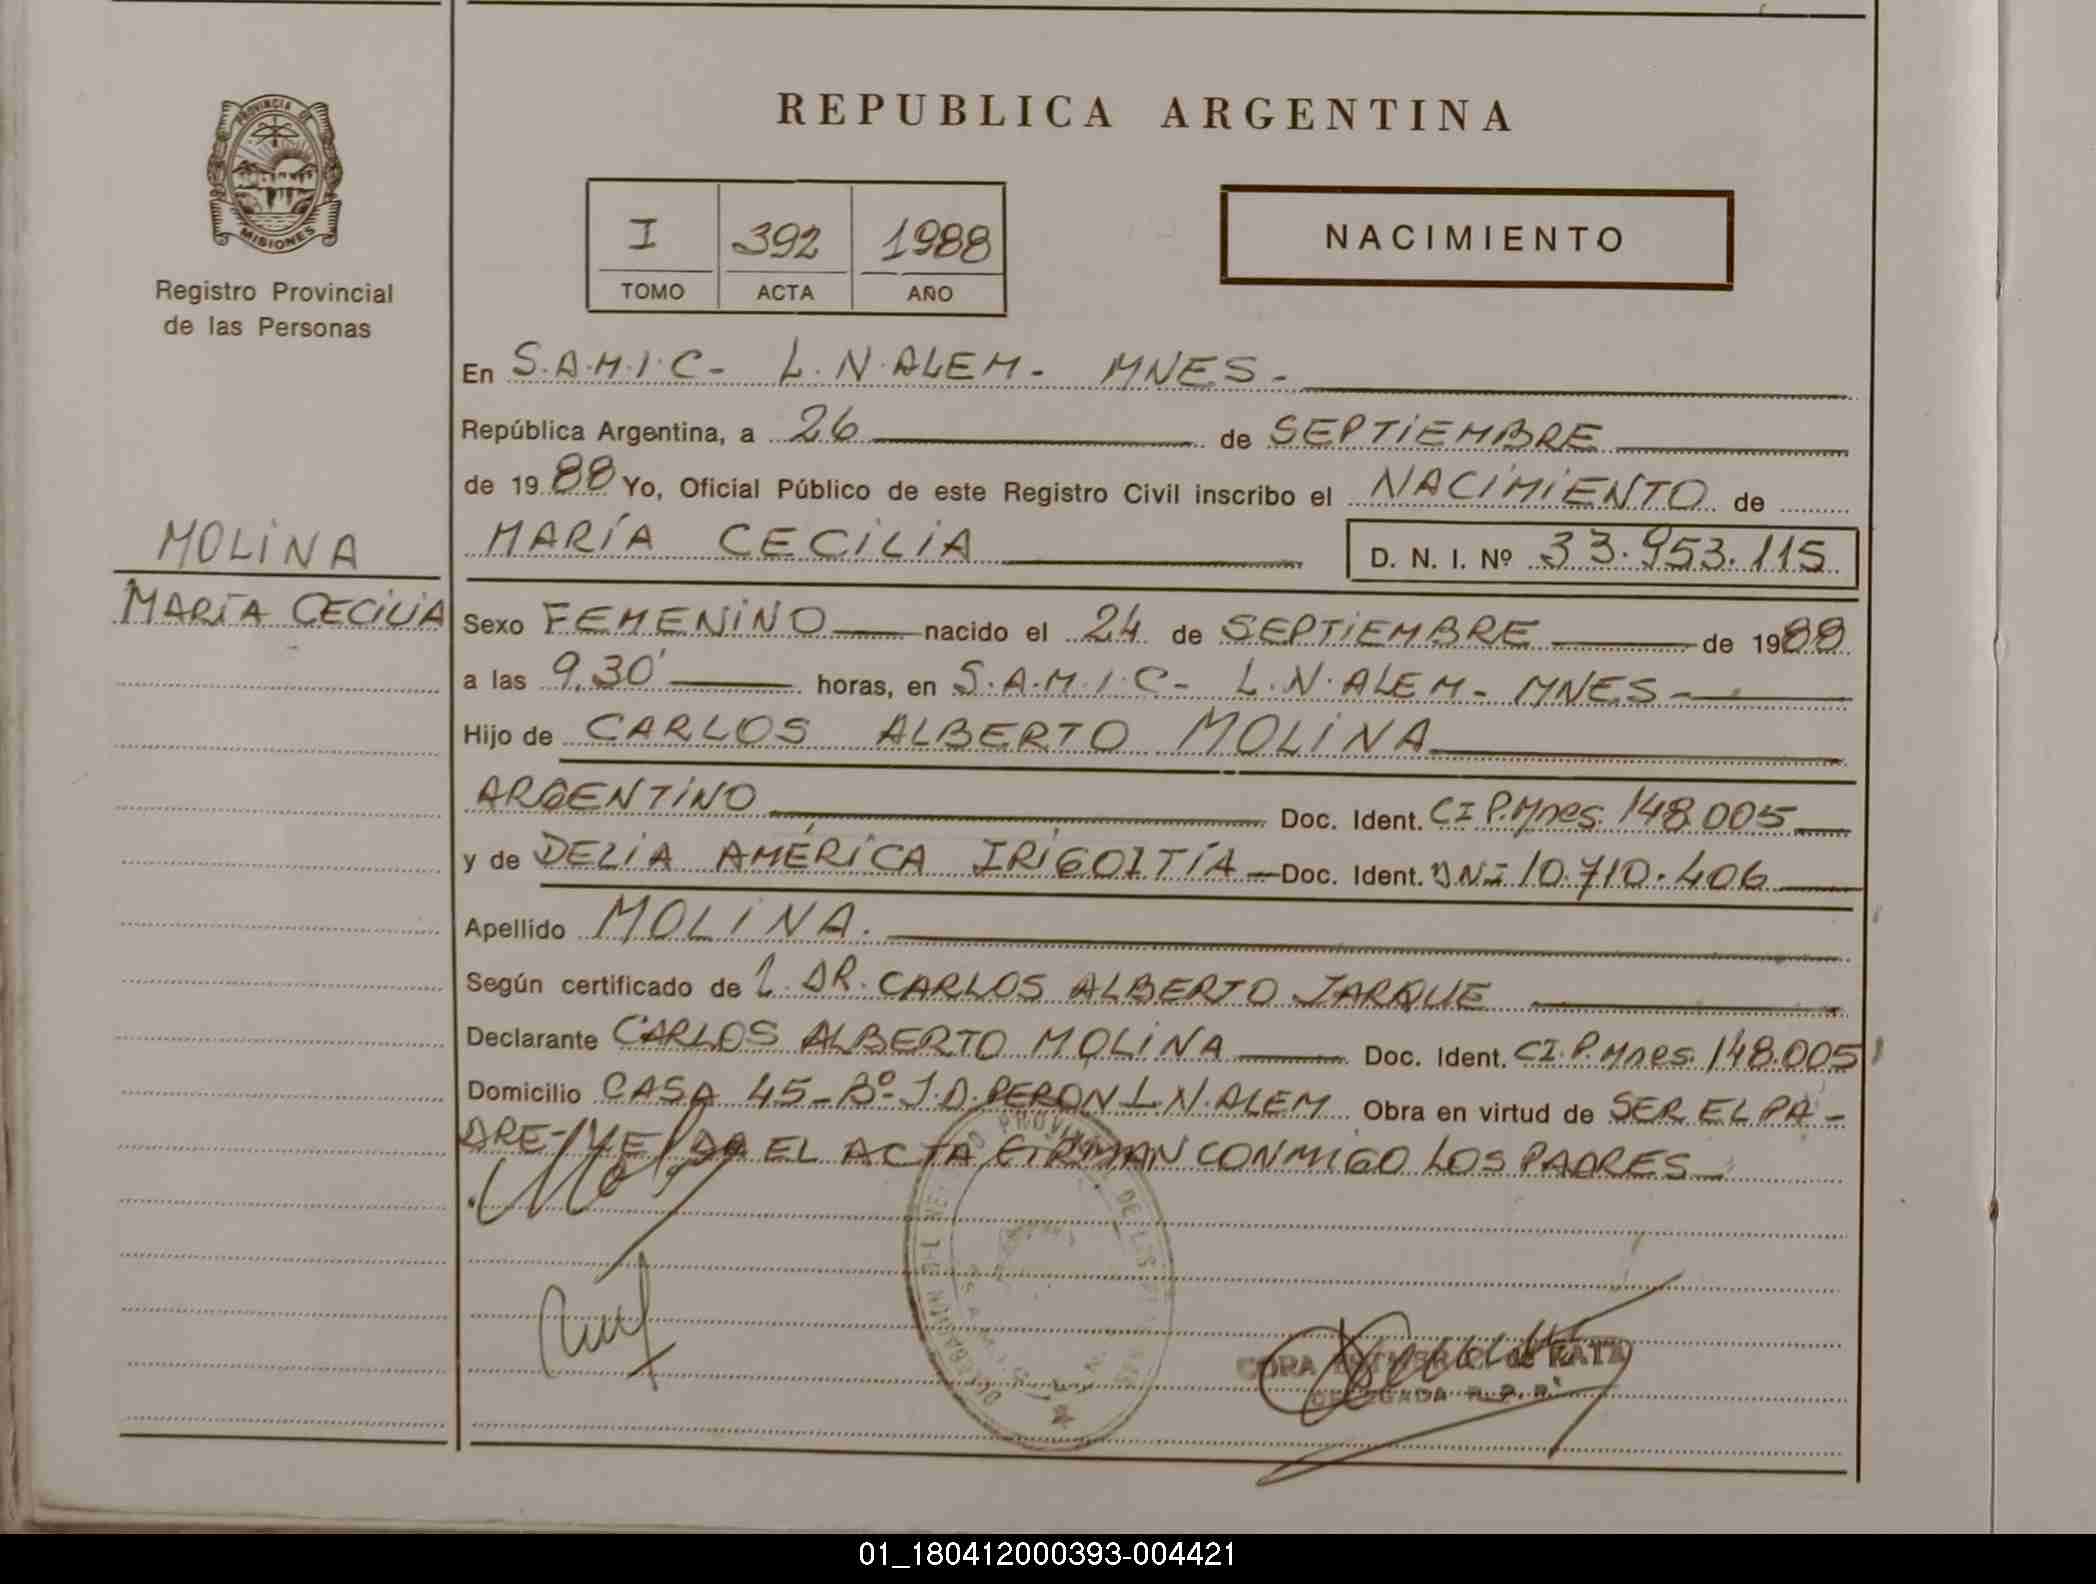 PROVINCIA DE
MISIONES
Registro Provincial
de las Personas
MOLINA
MARÍA CECILIA
REPUBLICA ARGENTINA
I 392 1988
TOMO ACTA AÑO
NACIMIENTO
En S.A.M.I.C- L.N.ALEM- MNES-
República Argentina, a 26 de SEPTIEMBRE
de 1988 Yo, Oficial Público de este Registro Civil inscribo el NACIMIENTO de
MARÍA CECILIA D. N. I. Nº 33.953.115
Sexo FEMENINO nacido el 24 de SEPTIEMBRE de 1988
a las 9,30' horas, en S.A.M.I.C- L.N.ALEM- MNES-
Hijo de CARLOS ALBERTO MOLINA
ARGENTINO Doc. Ident. CI P.Mnes. 148.005
y de DELIA AMÉRICA IRIGOITÍA Doc. Ident. DNI 10.710.406
Apellido MOLINA.
Según certificado de l. DR. CARLOS ALBERTO JARQUE
Declarante CARLOS ALBERTO MOLINA Doc. Ident. CI.P.Mnes. 148.005
Domicilio CASA 45-Bº-J.D.PERON L.N.ALEM Obra en virtud de SER EL PA-
DRE- EL ACTA FIRMAN CONMIGO LOS PADRES
CORA de KATZ
DELEGADA R.P.P.
01_180412000393-004421